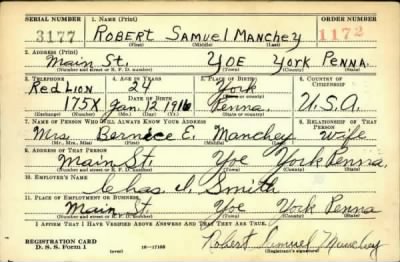 SERIAL NUMBER 1. NAME (Print) ORDER NUMBER
3177 ROBERT SAMUEL MANCHEY 1172
(First) (Middle) (Last)
2. ADDRESS (Print)
Main St. YOE YORK PENNA.
(Number and street or R. F. D. number) (Town) (County) (State)
3. TELEPHONE 4. AGE IN YEARS 5. PLACE OF BIRTH 6. COUNTRY OF CITIZENSHIP
RED LION 24 York
(Exchange) DATE OF BIRTH (Town or county)
175X Jan. 12 1916 Penna. U.S.A.
(Number) (Mo.) (Day) (Yr.) (State or country)
7. NAME OF PERSON WHO WILL ALWAYS KNOW YOUR ADDRESS 8. RELATIONSHIP OF THAT PERSON
Mrs. Bernice E. Manchey Wife
(Mr., Mrs., Miss) (First) (Middle) (Last)
9. ADDRESS OF THAT PERSON
Main St. Yoe York Penna.
(Number and street or R. F. D. number) (Town) (County) (State)
10. EMPLOYER'S NAME
Chas. Smith
11. PLACE OF EMPLOYMENT OR BUSINESS
Main St. Yoe York Penna
(Number and street or R. F. D. number) (Town) (County) (State)
I AFFIRM THAT I HAVE VERIFIED ABOVE ANSWERS AND THAT THEY ARE TRUE.
REGISTRATION CARD
D. S. S. Form 1 (over) 16—17105 Robert Samuel Manchey
(Registrant's signature)